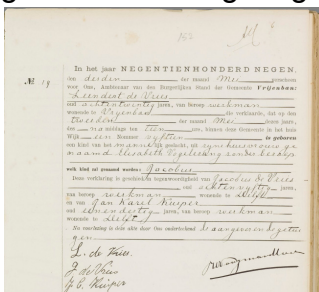 In het jaar NEGENTIENHONDERD NEGEN,
No 19
den derden der maand Mei verscheen
voor Ons, Ambtenaar van den Burgerlijken Stand der Gemeente Vrijenban:
Leendert de Vries
oud achtentwintig jaren, van beroep werkman
wonende te Vrijenban, die verklaarde, dat op den
tweeden der maand Mei dezes jaars,
des middags ten tien ure, binnen deze Gemeente in het huis
Wijk een Nummer vijftien is geboren
een kind van het mannelijk geslacht, uit zijne huisvrouw ge
naamd Elisabeth zonder beroep
welk kind zal genaamd worden: Jacobus
Deze verklaring is geschied in tegenwoordigheid van Jacobus de Vries
oud jaren,
van beroep werkman wonende te Delft
en van Jan Karel Kuiper
oud eenendertig jaren, van beroep werkman
wonende te Delft
Na voorlezing is deze akte door Ons onderteekend de aangever en de getui
gen
L. de Vries
J de Vries
J. C. Kuiper